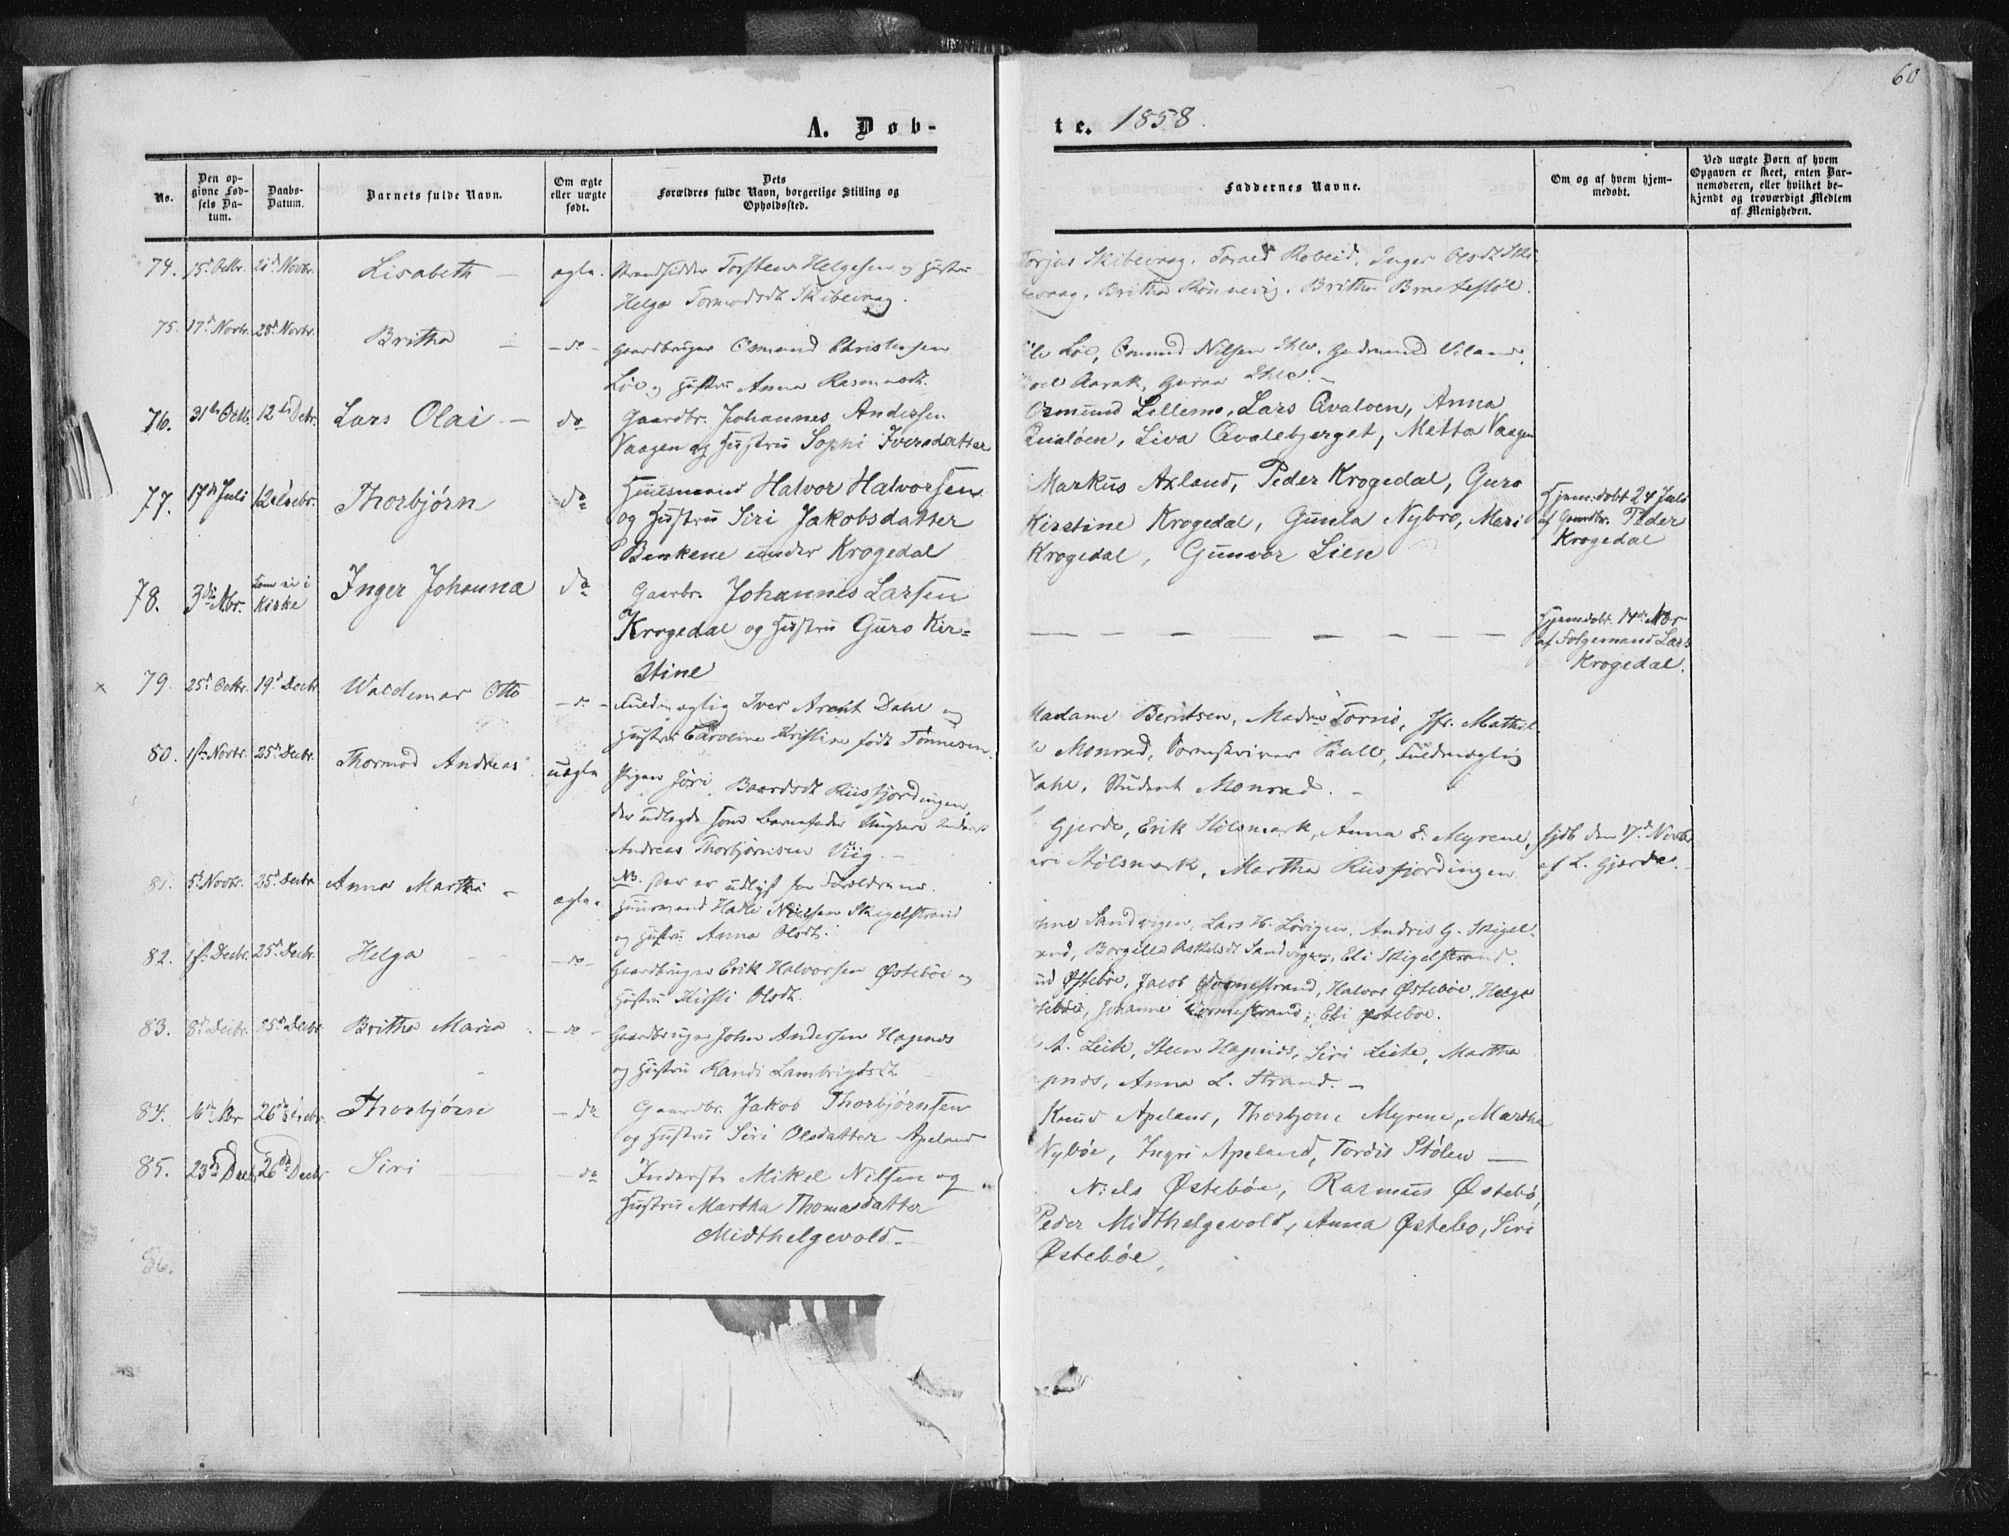 60
A. Døb-
te. 1858.
No.
Den op-
givne Fød-
sels Da-
tum.
Daabs-
Datum.
Barnets fulde Navn.
Om ægte
eller uægte
født.
Dets
Forældres fulde Navn, borgerlige Stilling og
Opholdssted.
Faddernes Navne.
Om og af hvem hjem-
medøbt.
Ved uægte Børn af hvem
Opgaven er skeet, enten Bar-
nemoderen, eller hvilket be-
kjendt og troværdigt Medlem
af Menigheden.
74. 15d Octbr. 21d Novbr. Lisabeth — ægte. Strandsidder Torsten Helgesen og Hustru
Helga Tormodsdt. Skibevaag.
Skibevaag. Inger Olsdt Ski
evaag, Britha Rönnevig, Britha Braatestøl.
75. 17d Novbr. 28d Novbr. Britha — do — Gaardbruger Osmund Christensen
Löe og Hustru Anna Rasmusdt.
Löe, Osmund Nilsen Ihle, Gudmund Viland,
Aarak, Guroa Ihle. —
76. 31te Octb. 12te Debr. Lars Olai — do Gaardbr. Johannes Andersen
Vaagen og Hustru Sophi Iversdatter
Osmund Lillemo, Lars Qvaloen, Anna
Qvaløen, Liva Qvalebjerget, Metta Vaagen
77. 17de Juli 12te Debr. Thorbjørn do Huusmand Halvor Halvorsen
og Hustru Siri Jakobsdatter
Benkene under Krogedal
Markus Axland, Peder Krogedal, Guro
Kirstine Krogedal, Gunla Nybro, Mari
Krogedal, Gunvor Lien
Hjemdobt 24 Juli
af Gaardbr. Peder
Krogedal
78. 3die Nbr. Kom ei i
Kirke Inger Johanna do Gaarbr. Johannes Larsen
Krogedal og Hustru Guro Kir=
stine
— — — — — — — —
Hjemdobt. 14de Nbr
af Folgemand Lars
Krogedal.
79. 25d Octbr. 19d Decbr. Waldemar Otto — do — Fuldmægtig Iver Arent Dahl og
Hustru Caroline Kristine født Tönnesen.
Madame Berntsen, Madme Tornö, Jfr. Mathil-
Monrad, Sorenskriver Bull, Fuldmægtig
Dahl, Student Monrad. —
80. 1ste Novbr. 25d Decbr. Thormod Andreas uægte Pigen Jöri Baardsdt Riisfjordingen,
der udlagde som Barnefader Ungkarl
Andreas Thorbjörnsen Viig. —
NB. Der er udlyst for Forældrene.
Gjerde, Erik Stölsmark, Anna E. Myrene,
Stölsmark, Martha Riisfjordingen
hjdb den 17d Novbr
af L. Gjerde.
81. 5t Novbr. 25d Decbr. Anna Martha — ægte. Huusmand Hadle Nielsen Skigelstrand
og Hustru Anna Olsdt.
Sandvigen, Lars H. Lövigen, Andris G. Skigel-
Borgille Askelsdt Sandvigen, Eli Skigelstrand.
82. 1ste Decbr. 25d Decbr. Helga — do — Gaardbruger Erik Halvorsen Østebøe og
Hustru Kirsti Olsdt.
Østebøe, Jacob Vormestrand, Halvor Østebøe, Helge
Johanne Vormestrand, Eli Østeboe.
83. 8d Decbr. 25d Decbr. Britha Maria — do — Gaardbruger John Andersen Hapnes
og Hustru Randi Lambrigtsdt.
A. Leite, Steen Hapnes, Siri Leite, Martha
pnæs, Anna L. Strand. —
84. 16de Nbr 26de Debr. Thorbjørn — do Gaardbr. Jakob Thorbjörnsen
og Hustru Siri Olsdatter Apeland
Knud Apeland, Thorbjorn Myrene, Martha
Nybøe, Ingri Apeland, Tordis Stölen —
85. 23de Decbr 26de Decbr Siri — do Inderste Mikel Nilsen og
Hustru Martha Thomasdatter
Midthelgevold —
Niels Østebøe, Rasmus Østebö,
Peder Midthelgevold, Anna Østebo, Siri
Østebøe,
86.